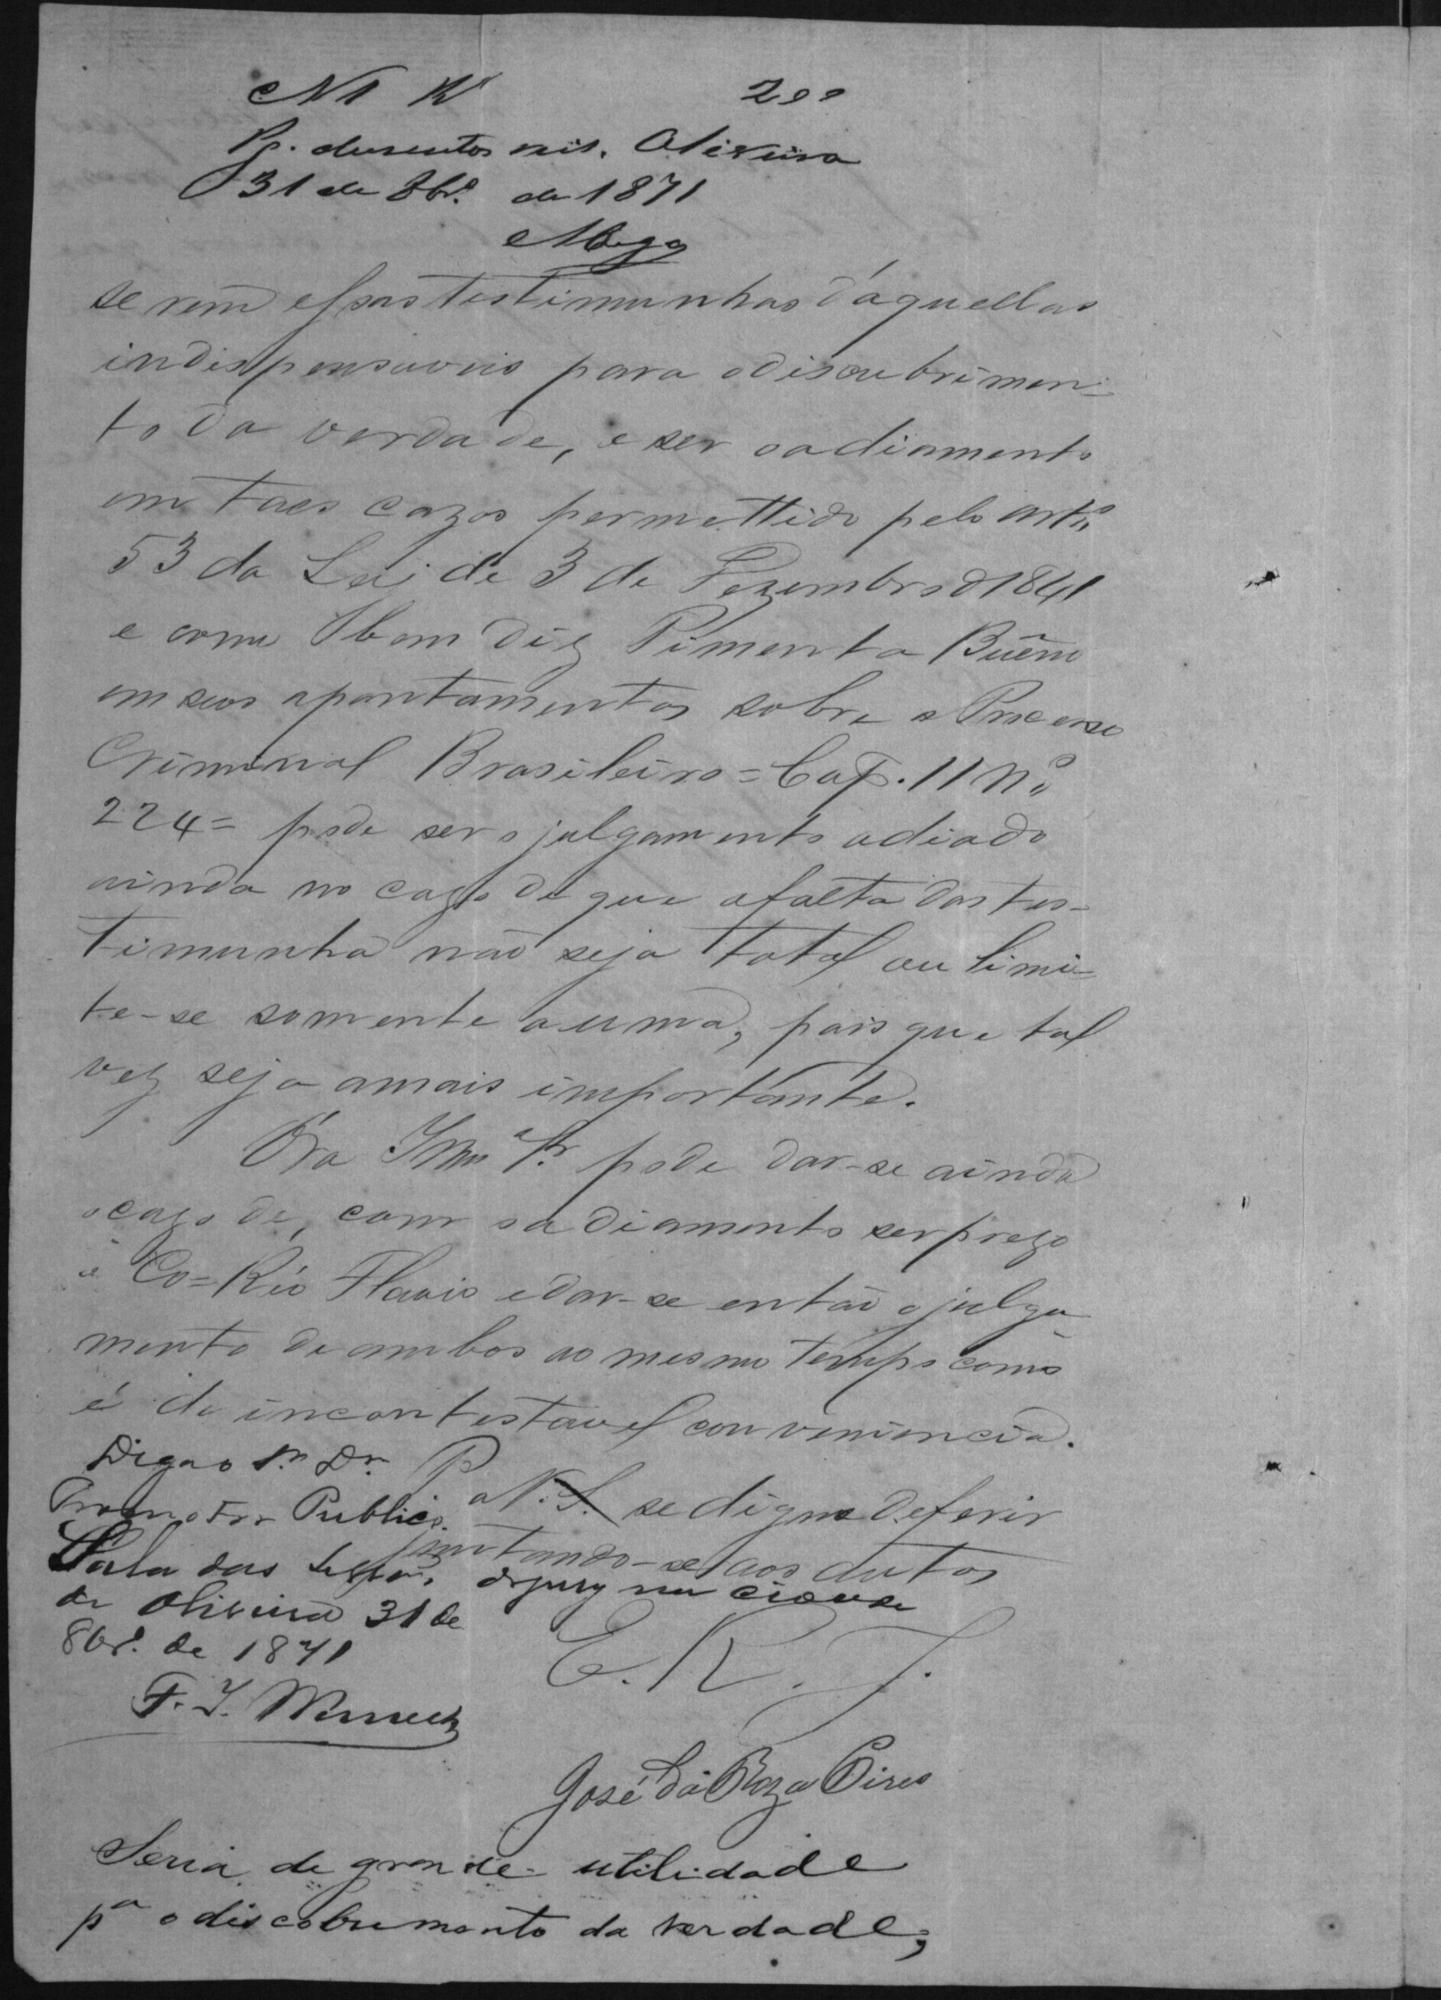 N 1 R 200
Pg. dusentos reis. Oliveira
31 de 8br.º de 1871
serem essas testimunhas d'aquellas
indispensaveis para o discubrimen-
to da verdade, e ser o adiamento
em taes cazos permettido pelo artº
53 da Lei de 3 de Dezembro d 1841
e como bem diz Pimenta Buêno
em seos apontamentos sobre o Processo
Criminal Brasileiro = Cap. 11 Nº
224 = pode ser o julgamento adiado
ainda no cazo de que a falta das tes-
timunha não seja total ou limi-
te-se somente a uma, pois que tal
vez seja a mais importante.
Ora Illmº Sr. pode dar-se ainda
o cazo de, com o adiamento ser prezo
o Co=Réo Flavio e dar-se então o julga-
mento de ambos ao mesmo tempo como
é de incontestavel conveniencia.
P a V. S. se digne deferir
juntando-se aos autos
E. R. J.
José da Roza Pires
Diga o Sr. Dr.
Promotor Publico.
Sala das Sessões do jury na cidade
de Oliveira 31 de
8br.º de 1871
F. I. Werneck
Seria de grande utilidade
pª o discobrimento da verdade,